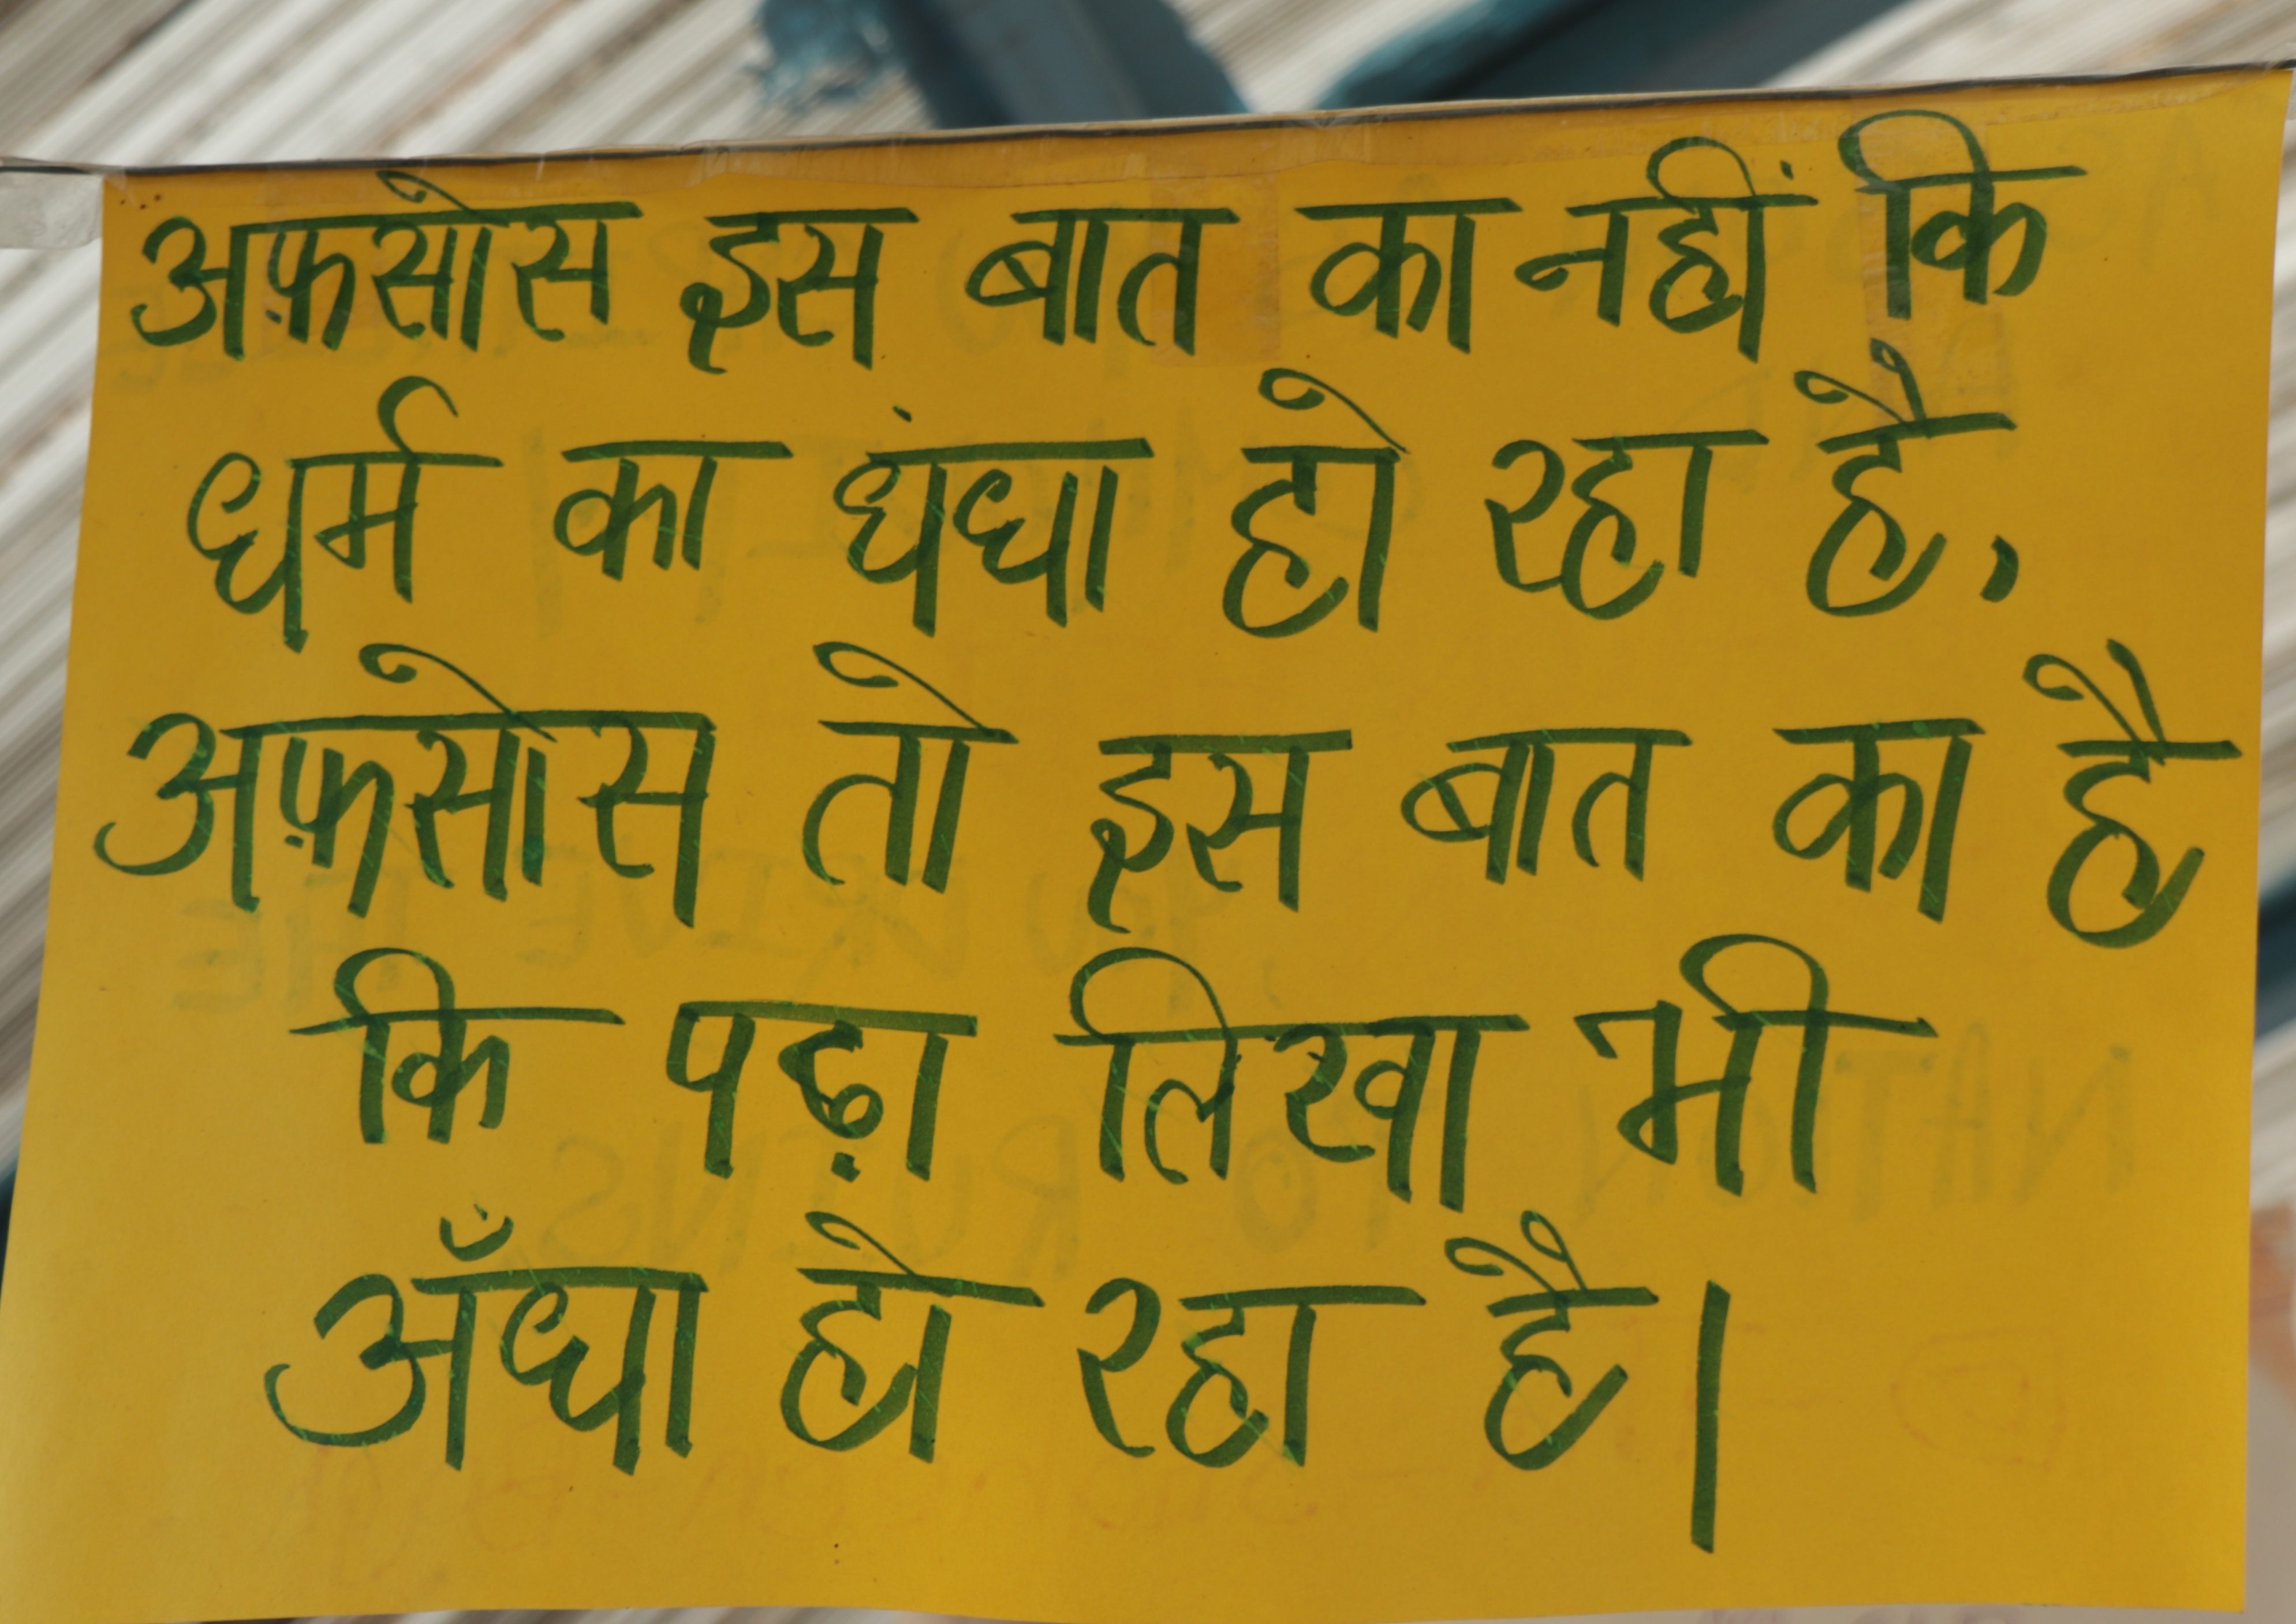 अफ़सोस इस बात का नहीं कि
धर्म का धंधा हो रहा है,
अफ़सोस तो इस बात का है
कि पढ़ा लिखा भी
अँधा हो रहा है।